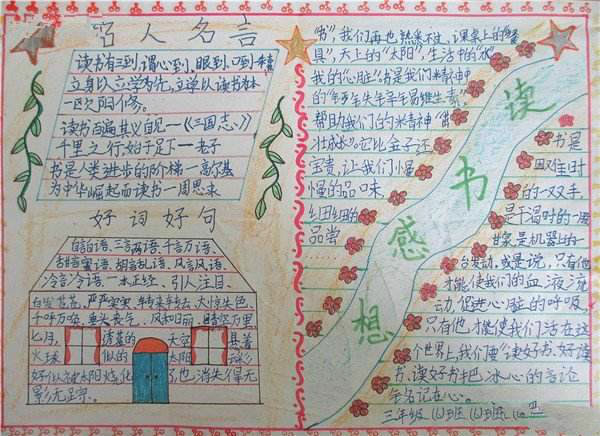 名人名言
读书有三到,谓心到,眼到,口到 朱熹
立身以立学为先,立学以读书为本
一欧阳修。
读书百遍其义自见一《三国志》
千里之行,始于足下一老子
书是人类进步的阶梯一高尔基
为中华崛起而读书一周恩来
好词好句
自言自语、三言两语、千言万语、
甜言蜜语、胡言乱语、风言风语、
冷言冷语、一本正经、引人注目、
大惊失色、
垂头丧气、风和日丽、晴空万里
七月,诱蓝的天空县着
火球似的太阳
好似被太阳烧化了,也消失得无
影无踪。
读书感想
书",我们再也熟悉不过,课桌上的"餐
具",天上的"太阳",生活中的"水"
我的"心脏"书是我们精神
帮助我们的精神"
壮成长"它比金子还
宝贵,让我们慢
慢的品味
细细的
品尝
书是
困难时
的一双手,
是干渴时的一
甘泉是机器上的一
台发动,或是说,只有他
才能使我们的血液流
动,促进心脏的呼吸,
只有他,才能使我们活在这
个世界上,我们要"读好书、好读
书、读好书"把冰心的言论
牢名记在心。
三年级